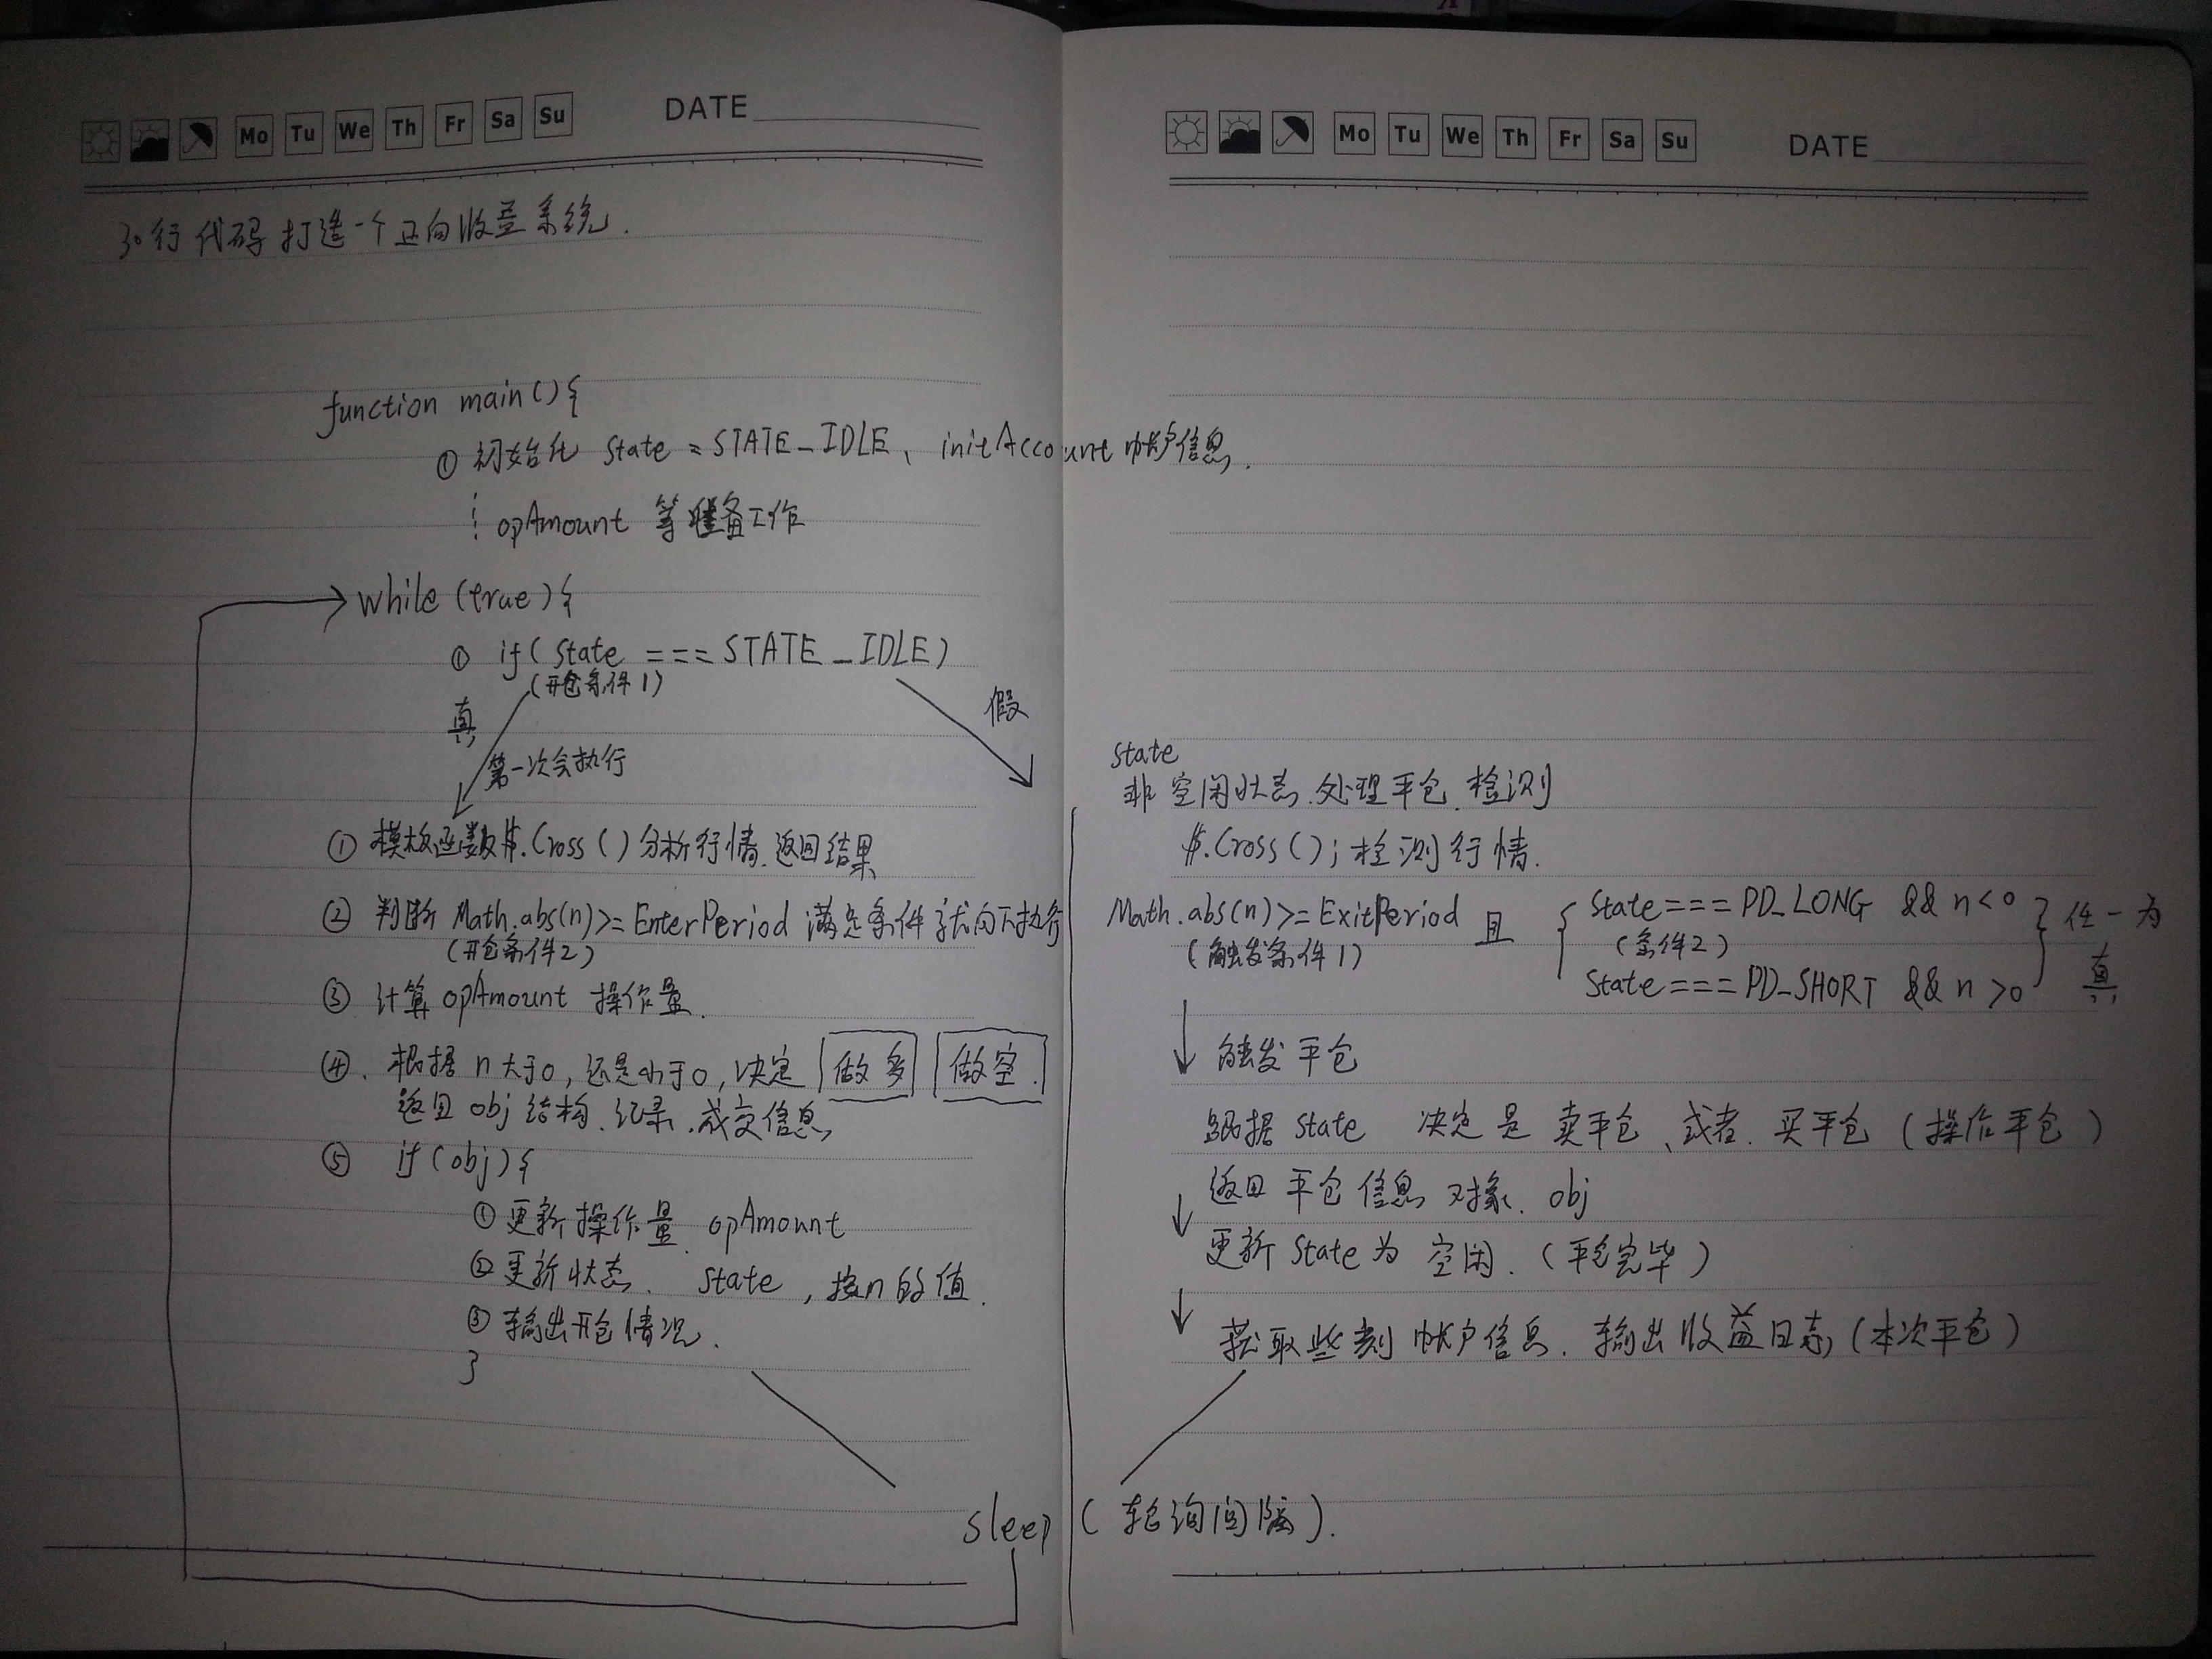 Mo Tu We Th Fr Sa Su DATE
30行代码打造一个正向收益系统.
function main(){
① 初始化 State = STATE_IDLE、initAccount 帐户信息.
opAmount 等准备工作
while(true){
① if(State === STATE_IDLE)
(开仓条件1)
真
假
第一次会执行
① 模板函数 $.Cross() 分析行情.返回结果
② 判断 Math.abs(n)>=EnterPeriod 满足条件试向下执行
(开仓条件2)
③ 计算 opAmount 操作量.
④. 根据 n 大于0,还是小于0,决定 做多 做空.
返回 obj 结构.记录.成交信息
⑤ if(obj){
① 更新操作量. opAmount
② 更新状态. State,按n的值.
③ 输出开仓情况.
}
Sleep (轮询间隔).
Mo Tu We Th Fr Sa Su DATE
State
非空闲状态.处理平仓.检测
$.Cross();检测行情.
Math.abs(n)>=ExitPeriod 且 { State === PD_LONG && n<0 } 任一为
(触发条件1) (条件2)
State === PD_SHORT && n>0 真
↓ 触发平仓
根据 State 决定是 卖平仓、或者. 买平仓 (操作平仓)
↓ 返回平仓信息对象. obj
更新 State 为 空闲. (平仓完毕)
↓ 获取此刻帐户信息. 输出收益日志 (本次平仓)